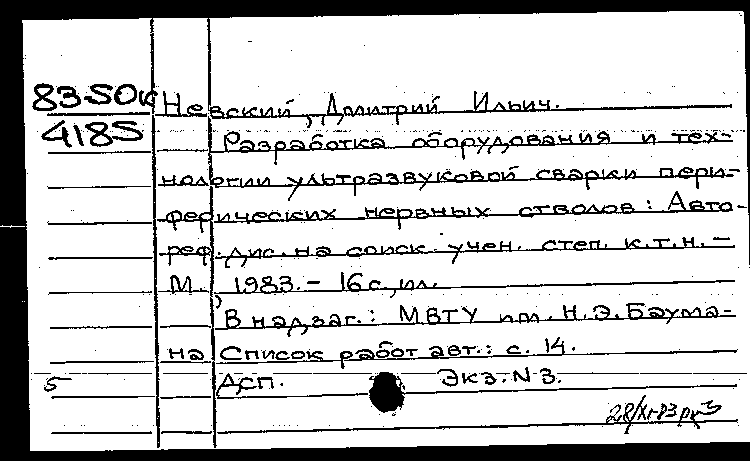 83-5OK Невский, Дмитрий Ильич.
4185 Разработка оборудования и тех-
нологии ультразвуковой сварки пери-
ферических нервных стволов: Авто-
реф. дис. на соиск. учен. степ. к.т.н. -
М., 1983. - 16 с., ил.
В надзаг.: МВТУ им. Н.Э.Баума-
на Список работ авт.: с. 14.
5 Дсп. Экз. N 3.